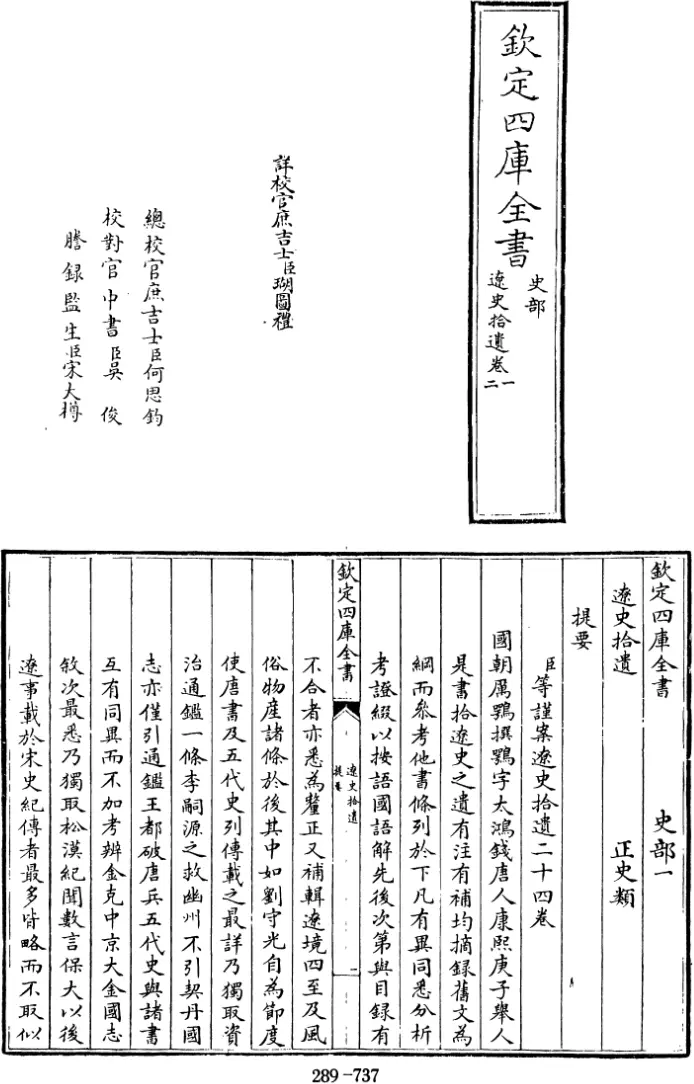 欽定四庫全書
史部
遼史拾遺卷一
二
詳校官庶吉士臣瑚圖禮
總校官庶吉士臣何思鈞
校對官中書臣吳俊
謄録監生臣宋大樽
欽定四庫全書 史部一
遼史拾遺 正史類
提要
臣等謹案遼史拾遺二十四卷
國朝厲鶚撰鶚字太鴻錢唐人康熙庚子舉人
是書拾遼史之遺有注有補均摘録舊文為
綱而叅考他書條列於下凡有異同悉分析
考證綴以按語國語解先後次第與目録有
欽定四庫全書
遼史拾遺
提要
一
不合者亦悉為釐正又補輯遼境四至及風
俗物産諸條於後其中如劉守光自為節度
使唐書及五代史列傳載之最詳乃獨取資
治通鑑一條李嗣源之救幽州不引契丹國
志亦僅引通鑑王都破唐兵五代史與諸書
互有同異而不加考辨金克中京大金國志
敘次最悉乃獨取松漠紀聞數言保大以後
遼事載於宋史紀傳者最多皆略而不取似
289-737